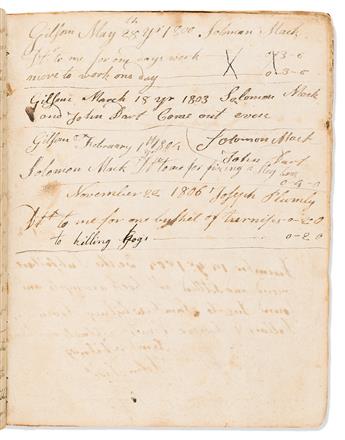 Gilsom May 28th yr 1800 Soloman Mack
Dt to me for one days work X 0-3-0
move to work one day X 0-3-0
Gilsom March 15 yr 1803 Solomon Mack
and John Dart Come out even
Solomon Mack
John Dart
Gilsom February 1th 1804
Solomon Mack Dt to me for fixing a Slay 0-4-0
November 22 1806 Joseph Plumly
Dt to me for one bushel of turnips 0-2-0
to killing hogs 0-2-0